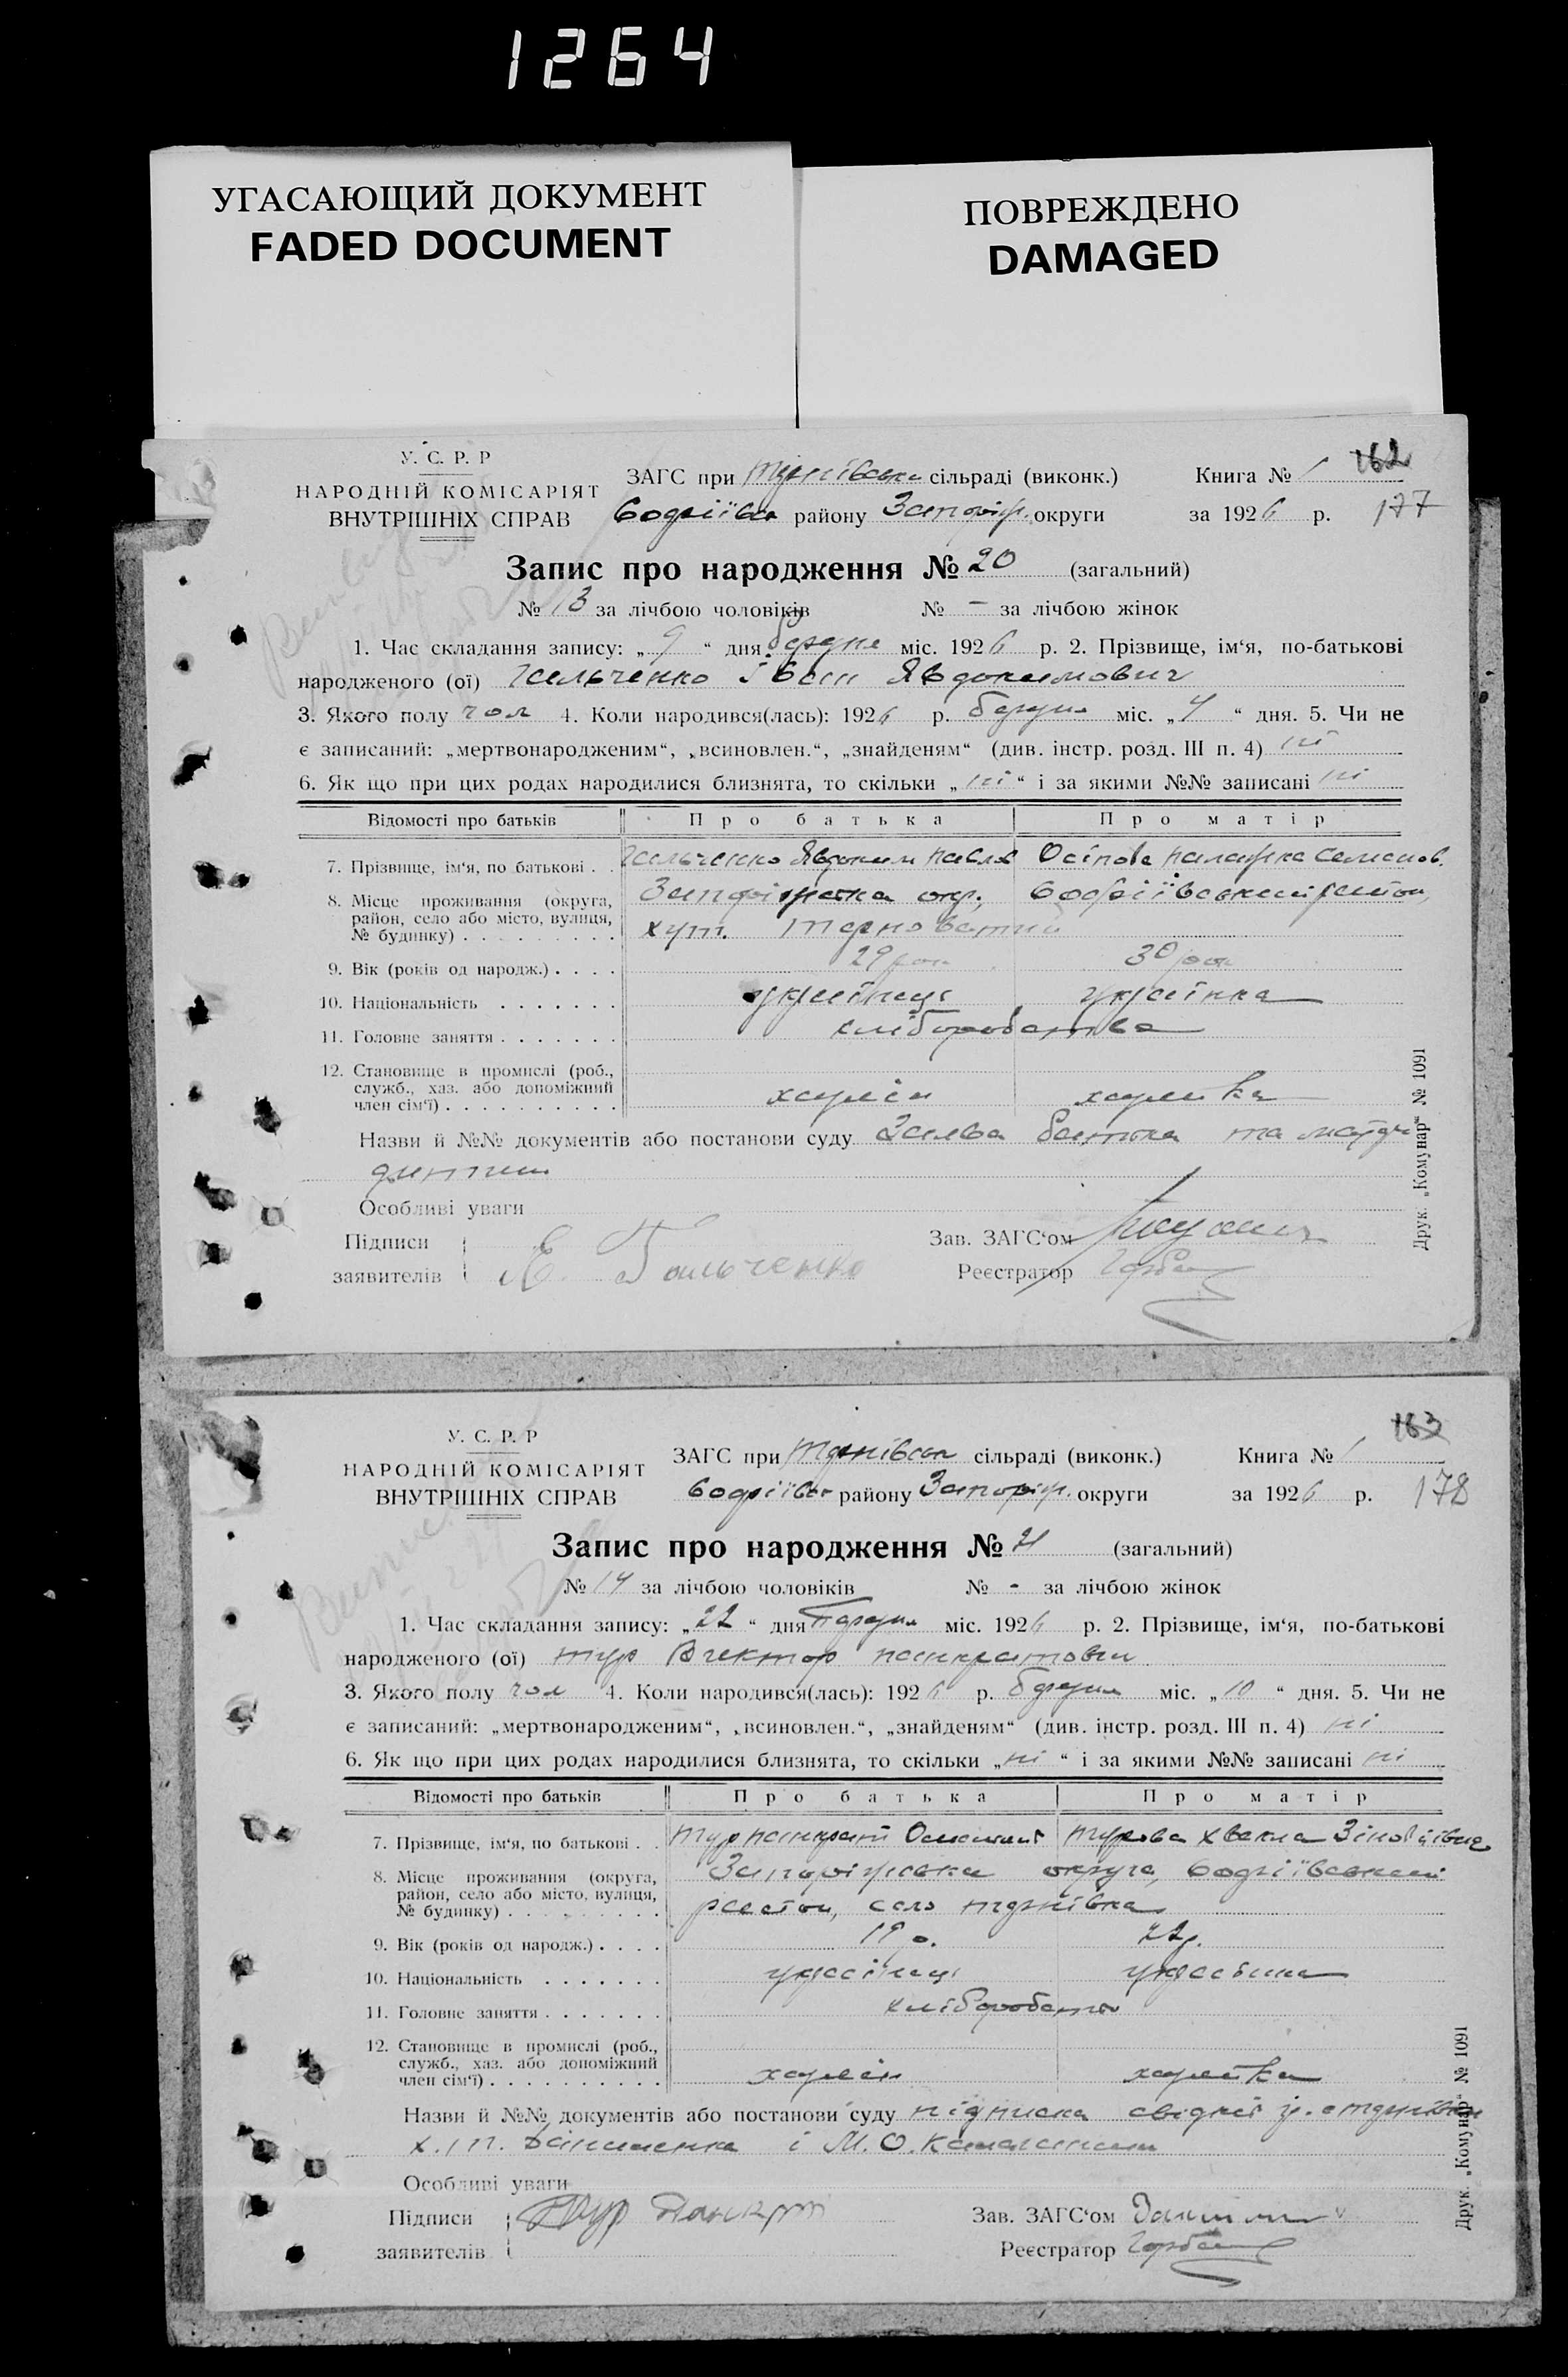 1264
УГАСАЮЩИЙ ДОКУМЕНТ
FADED DOCUMENT
ПОВРЕЖДЕНО
DAMAGED
У. С. Р. Р
НАРОДНІЙ КОМІСАРІЯТ
ВНУТРІШНІХ СПРАВ
ЗАГС при сільраді (виконк.)
району Запоріж. округи
Книга № 1 162
за 1926 р. 177
Запис про народження № 20 (загальний)
№ 13 за лічбою чоловіків № – за лічбою жінок
1. Час складання запису: „ 9 “ дня міс. 1926 р. 2. Прізвище, ім‘я, по-батькові
народженого (ої) Гальченко Іван Явдокимович
3. Якого полу чол 4. Коли народився(лась): 1926 р. міс. „ 4 “ дня. 5. Чи не
є записаний: „мертвонародженим“, „всиновлен.“, „знайденям“ (див. інстр. розд. III п. 4) ні
6. Як що при цих родах народилися близнята, то скільки „ ні “ і за якими №№ записані ні
Відомості про батьків Про батька Про матір
7. Прізвище, ім‘я, по батькові . . Гальченко Явдоким Павлов Осіпова Палажка Семенов.
8. Місце проживання (округа, район, село або місто, вулиця, № будинку) . . . . . . . . . Запоріжська окр., район,
хут. Терноватий
9. Вік (років од народж.) . . . . 29 рок 30 рок
10. Національність . . . . . . . українець українка
11. Головне заняття . . . . . . . хліборобство
12. Становище в промислі (роб., служб., хаз. або допоміжний член сім‘ї) . . . . . . . . . . хазяїн хазяйка
Назви й №№ документів або постанови суду Заява батька та матері
дитини
Особливі уваги
Підписи
заявителів Гальченко
Зав. ЗАГС‘ом
Реєстратор
Друк. „Комунар“ № 1091
У. С. Р. Р
НАРОДНІЙ КОМІСАРІЯТ
ВНУТРІШНІХ СПРАВ
ЗАГС при сільраді (виконк.)
району Запоріж. округи
Книга № 1 163
за 1926 р. 178
Запис про народження № 21 (загальний)
№ 14 за лічбою чоловіків № - за лічбою жінок
1. Час складання запису: „ 22 “ дня міс. 1926 р. 2. Прізвище, ім‘я, по-батькові
народженого (ої) Тур Віктор Панкратович
3. Якого полу чол 4. Коли народився(лась): 1926 р. міс. „ 10 “ дня. 5. Чи не
є записаний: „мертвонародженим“, „всиновлен.“, „знайденям“ (див. інстр. розд. III п. 4) ні
6. Як що при цих родах народилися близнята, то скільки „ ні “ і за якими №№ записані ні
Відомості про батьків Про батька Про матір
7. Прізвище, ім‘я, по батькові . . Тур Панкрат Турова Зіновіївна
8. Місце проживання (округа, район, село або місто, вулиця, № будинку) . . . . . . . . . Запоріжська округа,
район, село
9. Вік (років од народж.) . . . . 19 р. 22 р.
10. Національність . . . . . . . українець українка
11. Головне заняття . . . . . . . хліборобство
12. Становище в промислі (роб., служб., хаз. або допоміжний член сім‘ї) . . . . . . . . . . хазяїн хазяйка
Назви й №№ документів або постанови суду підписка свідків
і М. О.
Особливі уваги
Підписи
заявителів Тур Панкрат
Зав. ЗАГС‘ом
Реєстратор
Друк. „Комунар“ № 1091